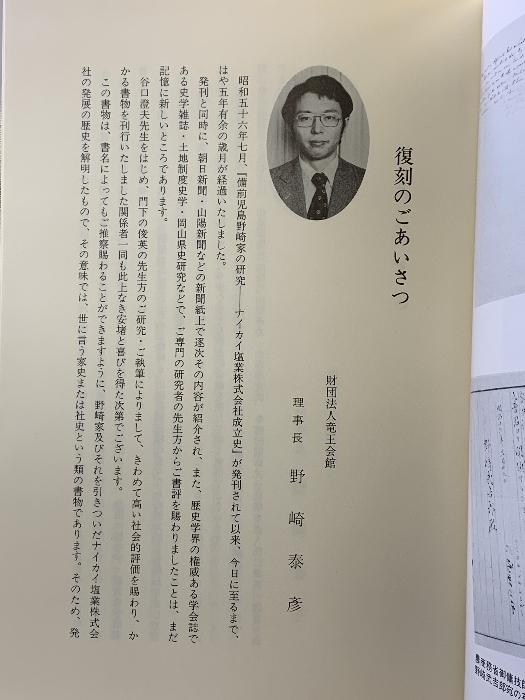 復刻のごあいさつ
財団法人竜王会館
理事長 野崎泰彦
昭和五十六年七月、『備前児島野崎家の研究――ナイカイ塩業株式会社成立史』が発刊されて以来、今日に至るまで、
はや五年有余の歳月が経過いたしました。
発刊と同時に、朝日新聞・山陽新聞などの新聞紙上で逐次その内容が紹介され、また、歴史学界の権威ある学会誌で
ある史学雑誌・土地制度史学・岡山県史研究などで、ご専門の研究者の先生方からご書評を賜わりましたことは、まだ
記憶に新しいところであります。
谷口澄夫先生をはじめ、門下の俊英の先生方のご研究・ご執筆によりまして、きわめて高い社会的評価を賜わり、か
かる書物を刊行いたしました関係者一同も此上なき安堵と喜びを得た次第でございます。
この書物は、書名によってもご推察賜わることができますように、野崎家及びそれを引きついだナイカイ塩業株式会
社の発展の歴史を解明したもので、その意味では、世に言う家史または社史という類の書物であります。そのため、発
農商務省御傭技師
野崎武吉郎宛の